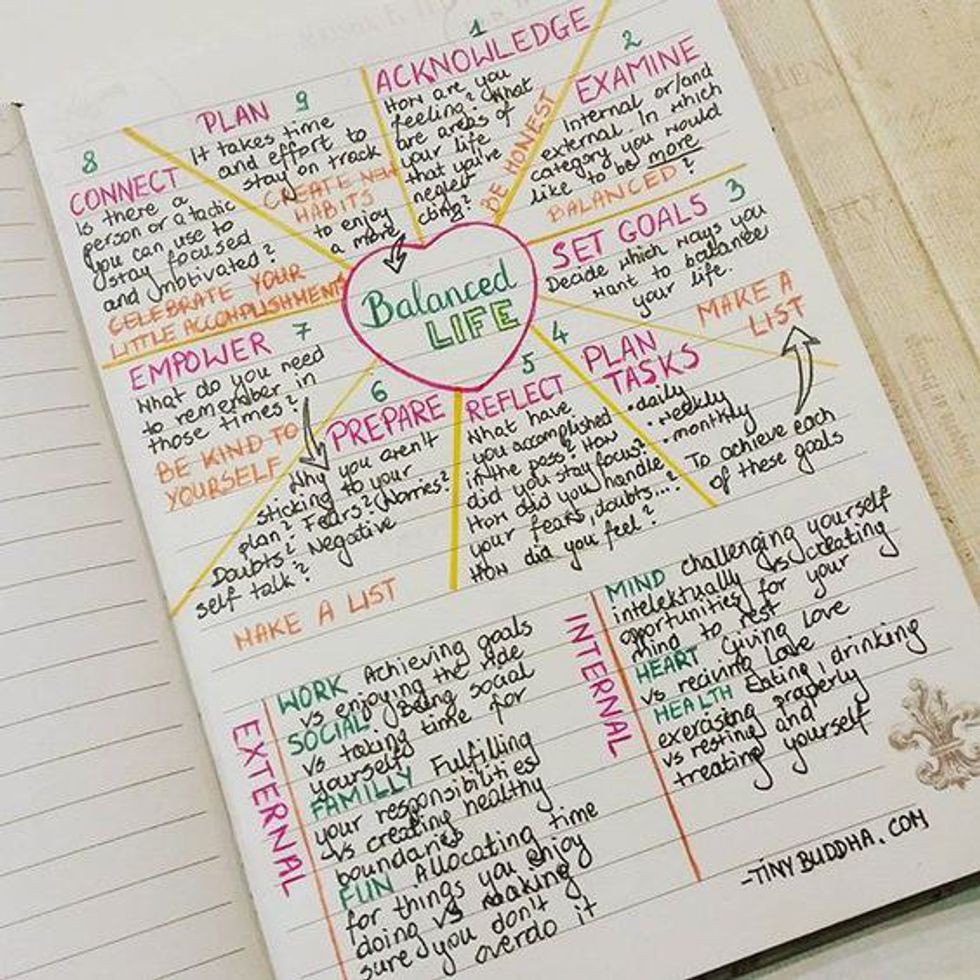 1
ACKNOWLEDGE
How are you
feeling? What
are areas of
your life
that you're
neglect
cting?
BE HONEST
2
EXAMINE
Internal or/and
external. In which
category you would
like to be more
BALANCED?
SET GOALS 3
Decide which ways you
want to balance
your life.
MAKE A
LIST
4
PLAN
TASKS
• daily
• weekly
• monthly
To achieve each
of these goals
5
REFLECT
What have
you accomplished
in the pass? How
did you stay focus?
How did you handle
your fears, doubts...?
How did you feel?
6
PREPARE
Why you aren't
sticking to your
plan? Fears? Worries?
Doubts? Negative
self talk?
MAKE A LIST
EMPOWER 7
What do you need
to remember in
those times?
BE KIND TO
YOURSELF
8
CONNECT
Is there a
person or a tactic
you can use to
stay focused
and motivated?
CELEBRATE YOUR
LITTLE ACCOMPLISHMENTS
PLAN 9
It takes time
and effort to
stay on track
CREATE NEW
HABITS
to enjoy
a more
Balanced
LIFE
EXTERNAL
WORK Achieving goals
vs enjoying the ride
SOCIAL Being social
vs taking time for
yourself
FAMILLY Fulfilling
your responsibilities
vs creating healthy
boundaries
FUN Allocating time
for things you enjoy
doing vs making
sure you don't
overdo it
INTERNAL
MIND challenging yourself
intelektually vs creating
opportunities for your
mind to rest
HEART Giving love
vs reciving love
HEALTH Eating, drinking
exercising properly
vs resting and
treating yourself
-TINYBUDDHA.COM